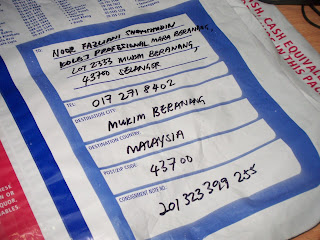 ISH, CASH EQUIVALE
IN THIS PAC
TO:
NOOR FAZLIANI SHAMSUDIN
KOLEJ PROFESIONAL MARA BERANANG,
LOT 2333 MUKIM BERANANG,
43700 SELANGOR
TEL:
017 271 8402
DESTINATION CITY:
MUKIM BERANANG
DESTINATION COUNTRY:
MALAYSIA
POST/ZIP CODE:
43700
CONSIGNMENT NOTE NO.:
201 323 399 255
HESE
N OR
QUOR,
ABLES.